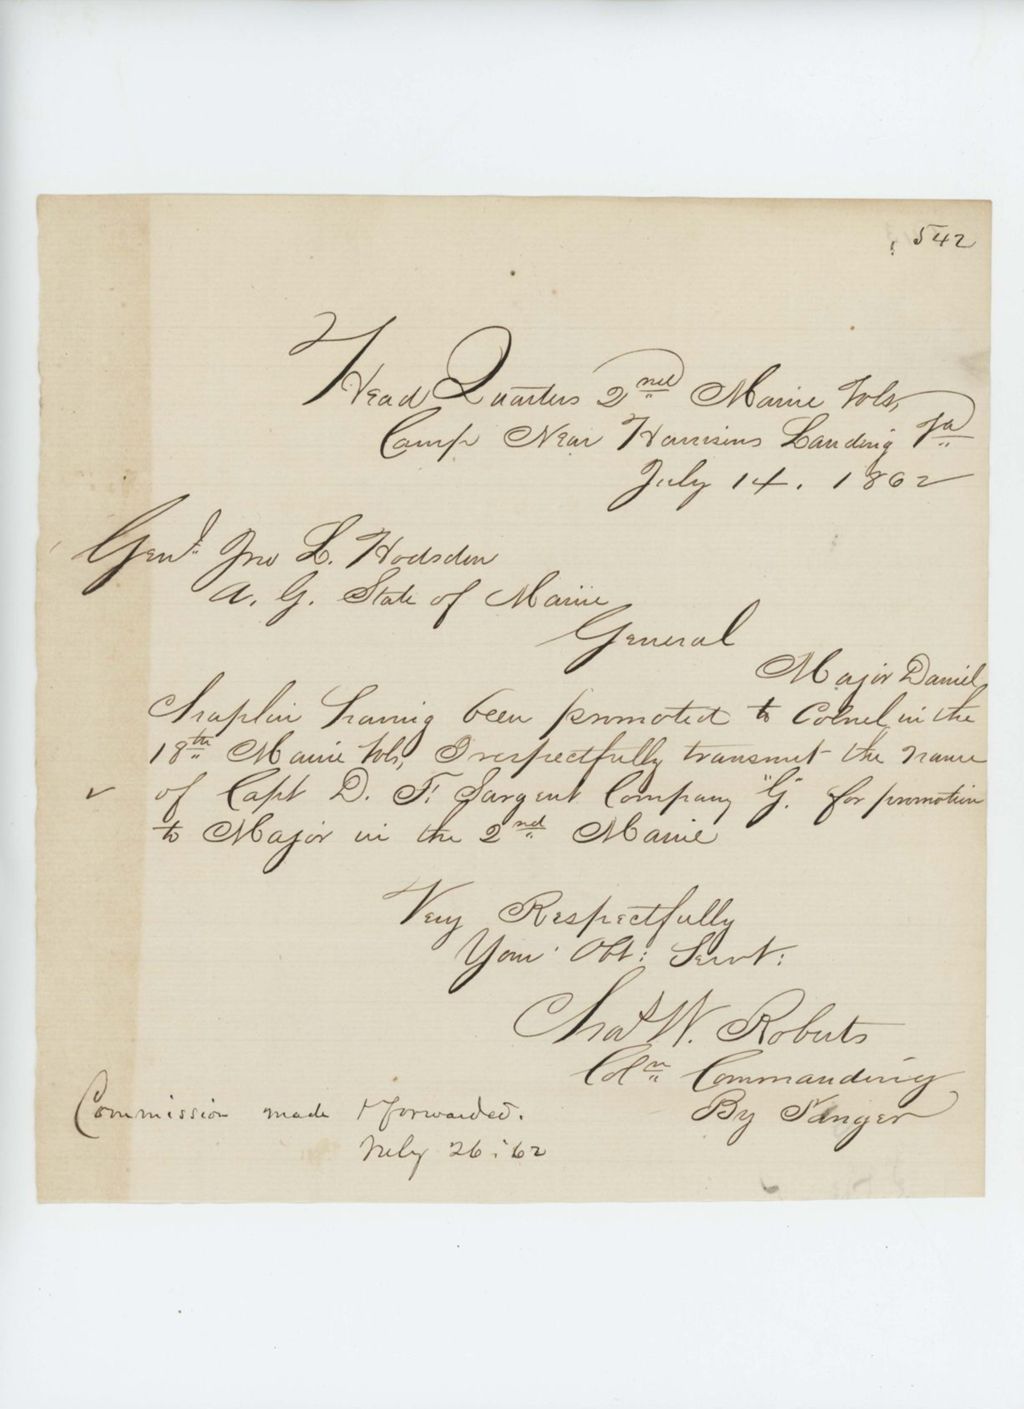 542
Head Quarters 2nd Maine Vols,
Camp Near Harrisons Landing Va
July 14. 1862
Genl. Jno L. Hodsdon
A. G. State of Maine
General
Major Daniel
Chaplin having been promoted to Colnel in the
18th Maine Vols, I respectfully transmit the name
of Capt D. F. Sargent Company "G". for promotion
to Major in the 2nd Maine
Very Respectfully
Your Obt: Servt:
Chas W. Roberts
Coln Commanding
By Sanger
Commission made & forwarded.
July 26 : 62